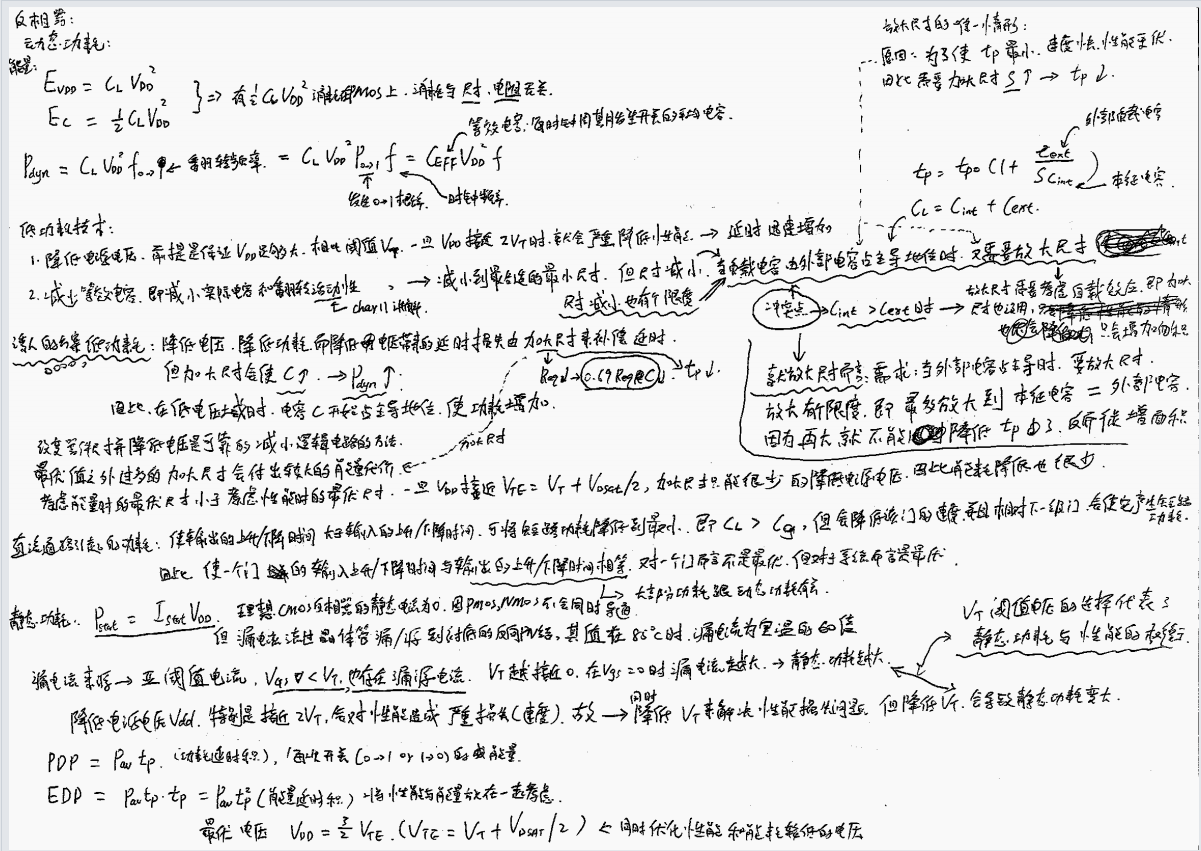 反相器:
动态功耗:
能量:
E_VDD = C_L V_DD²
E_C = ½ C_L V_DD²
} => 有½ C_L V_DD² 消耗在PMOS上, 消耗与尺寸, 电阻无关
等效电容: 每时钟周期发生开关的平均电容.
P_dyn = C_L V_DD² f_0→1 ← 翻转频率. = C_L V_DD² P_0→1 f = C_EFF V_DD² f
发生0→1概率. 时钟频率.
放大尺寸的唯一情形:
原因: 为了使 tp 最小, 速度快, 性能更优
因此需要加大尺寸 S↑ → tp↓.
外部负载电容
tp = tp0 (1 + Cext / S Cint)
本征电容.
C_L = Cint + Cext.
低功耗技术:
1. 降低电源电压. 前提是保证 V_DD 足够大. 相比阈值 V_T. 一旦 V_DD 接近 2V_T 时, 就会严重降低性能. → 延时迅速增加
2. 减少等效电容. 即减小实际电容和翻转活动性, → 减小到最合适的最小尺寸. 但尺寸减小, 当负载电容由外部电容占主导地位时, 又需要放大尺寸
尺寸减小也有个限度
冲突点 → Cint > Cext 时 →
放大尺寸要考虑自载效应. 即加大
只会增加面积
降低功耗: 降低电压, 降低功耗. 而降低电压带来的延时损失由加大尺寸来补偿延时.
但加大尺寸会使 C↑. → P_dyn↑.
Req↓ → 0.69 Req C↓ → tp↓.
因此, 在低电压域时, 电容 C 开始占主导地位, 使功耗增加.
就放大尺寸而言, 需求: 当外部电容占主导时, 要放大尺寸.
放大有限度. 即最多放大到 本征电容 = 外部电容.
因为再大就不能降低 tp 了, 反而徒增面积
改变器件尺寸并降低电压是可靠的减小逻辑电路的方法.
加大尺寸
最优值之外过多的加大尺寸会付出较大的能量代价
考虑能量时的最优尺寸小于考虑性能时的最优尺寸. 一旦 V_DD 接近 V_TE = V_T + V_Dsat/2, 加大尺寸只能很少的降低电源电压. 因此能耗降低也很少.
直流通路引起的功耗: 使输出的上升/下降时间大于输入的上升/下降时间, 可将短路功耗降低到最小. 即 C_L > , 但会降低该门的速度, 并且相对下一级门, 会使它产生短路功耗.
因此 使一个门的输入上升/下降时间与输出的上升/下降时间相等. 对一个门而言不是最优, 但对于系统而言是最优.
大部分功耗是动态功耗
静态功耗: P_stat = I_stat V_DD. 理想CMOS反相器的静态电流为0. 因PMOS, NMOS不会同时导通
但漏电流流过晶体管漏/源到衬底的反向PN结, 其值在85°C时, 漏电流为室温的60倍
V_T 阈值电压的选择代表了
静态功耗与性能的权衡.
漏电流来源 → 亚阈值电流, Vgs < V_T, 也存在漏源电流. V_T 越接近0, 在 Vgs = 0 时漏电流越大. → 静态功耗越大.
降低电源电压Vdd. 特别是接近 2V_T, 会对性能造成严重损失(速度). 故 → 同时降低 V_T 来解决性能损失问题. 但降低 V_T, 会导致静态功耗变大.
PDP = Pav tp. (功耗延时积), 每次开关(0→1 or 1→0)的能量.
EDP = Pav tp · tp = Pav tp² (能量延时积) 将性能与能量放在一起考虑.
最优电压 V_DD = 3/2 V_TE. (V_TE = V_T + V_DSAT/2) ← 同时优化性能和能耗较低的电压